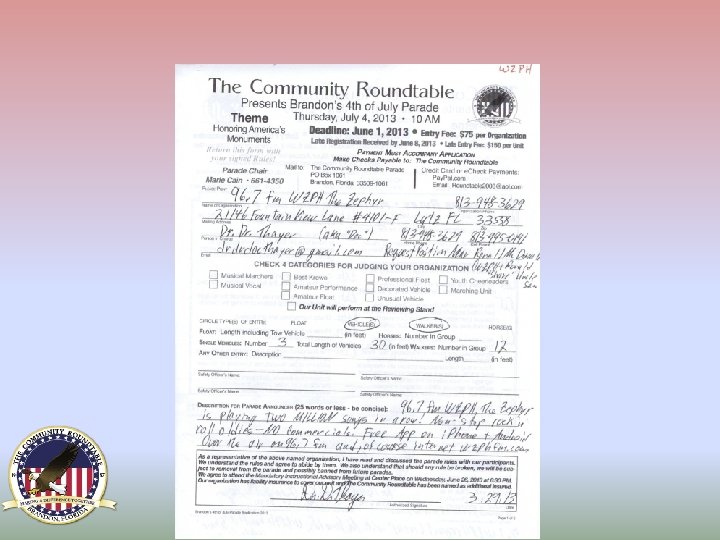 WZPH
The Community Roundtable
Presents Brandon's 4th of July Parade
Theme
Thursday, July 4, 2013 • 10 AM
Honoring America's
Monuments
Deadline: June 1, 2013 • Entry Fee: $75 per Organization
Late Registration Received by June 8, 2013 • Late Entry Fee: $150 per Unit
Return this form with
your signed Rules!
PAYMENT MUST ACCOMPANY APPLICATION
Make Checks Payable to: The Community Roundtable
Parade Chair
Marie Cain • 661-4350
Mail to: The Community Roundtable Parade
PO Box 1061
Brandon, Florida 33509-1061
Credit Card or eCheck Payments:
PayPal.com
Email: Roundtable2000@aol.com
96.7 fm WZPH The Zephyr 813-948-3629
Name of Organization
21146 Fountain View Lane #4101-F Lutz FL 33538
Mailing Address
Dr. Doc Thayer (aka "Doc") 813-948-3629
Email
CHECK 4 CATEGORIES FOR JUDGING YOUR ORGANIZATION
Musical Marchers
Musical Vocal
Best Xscwe
Amateur Performance
Amateur Float
Professional Float
Decorated Vehicle
Unusual Vehicle
Youth Cheerleaders
Marching Unit
Our Unit will perform at the Reviewing Stand
CIRCLE TYPE(S) OF ENTRY: FLOAT VEHICLE(S) WALKER(S) HORSE(S)
FLOAT: Length including Tow Vehicle (in feet) HORSES: Number In Group
SINGLE VEHICLES: Number 3 Total Length of Vehicles 30 (in feet) WALKERS: Number in Group 12
ANY OTHER ENTRY: Description Length (in feet)
Safety Officer's Name Safety Officer's Name
Safety Officer's Name Safety Officer's Name
DESCRIPTION FOR PARADE ANNOUNCER (25 words or less - be concise): 96.7 fm WZPH, The Zephyr
is playing TWO MILLION songs in a row. Non-stop rock n
roll oldies - NO commercials. Free App on iPhone & Android
Over the air on 96.7 fm and, of course internet wzphfm.com
As a representative of the above named organization, I have read and discussed the parade rules with our participants.
We understand the rules and agree to abide by them. We also understand that should any rule be broken, we will be subject to removal from the parade and possibly banned from future parades.
We agree to attend the Mandatory Informational Advisory Meeting at Center Place on Wednesday, June 26, 2013 at 6:30 PM.
Our organization has liability insurance to cover our unit and The Community Roundtable has been named as additional insured.
3.29.13
Authorized Signature Date
THE COMMUNITY ROUNDTABLE
MAKING A DIFFERENCE TOGETHER
BRANDON, FLORIDA